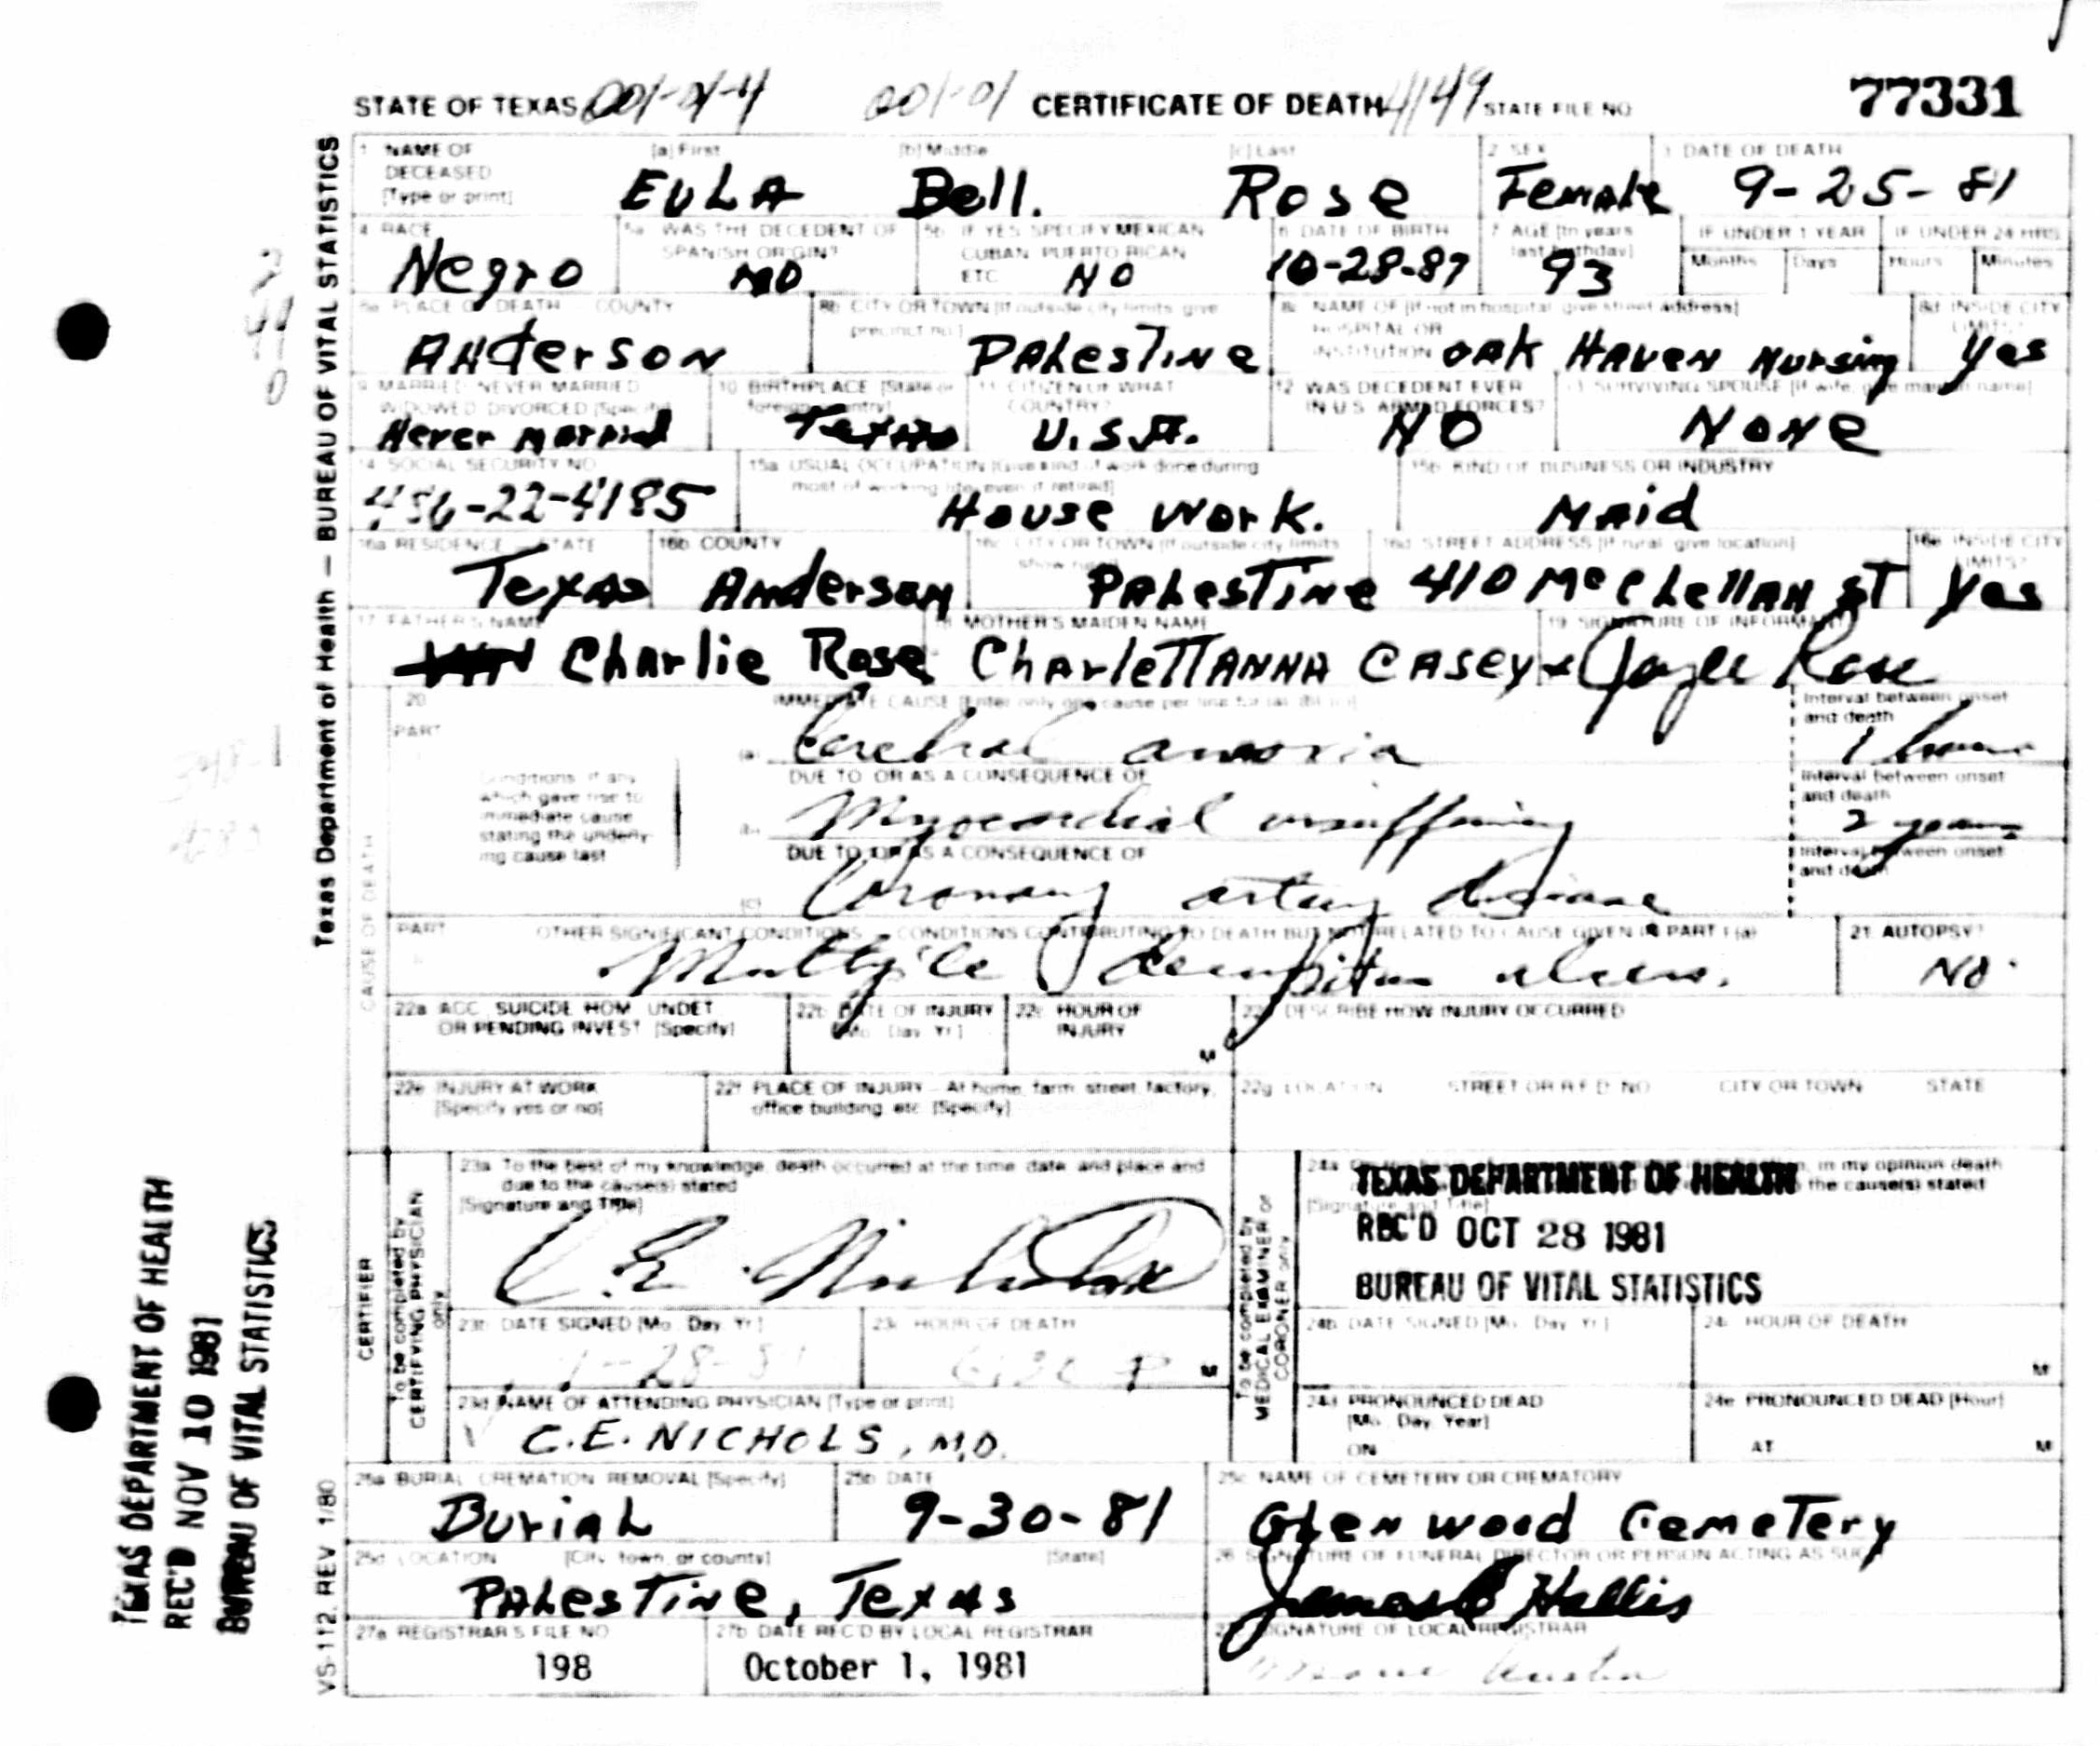 STATE OF TEXAS 001-01-4 001-01 CERTIFICATE OF DEATH 4149 STATE FILE NO 77331
Texas Department of Health — BUREAU OF VITAL STATISTICS
1 NAME OF DECEASED [Type or print] [a] First [b] Middle [c] Last 2 SEX 3 DATE OF DEATH
EULA Bell. Rose Female 9-25-81
4 RACE 5a WAS THE DECEDENT OF SPANISH ORIGIN? 5b IF YES SPECIFY MEXICAN CUBAN PUERTO RICAN ETC 6 DATE OF BIRTH 7 AGE [In years last birthday] IF UNDER 1 YEAR IF UNDER 24 HRS
Months Days Hours Minutes
Negro NO NO 10-28-87 93
8a PLACE OF DEATH COUNTY 8b CITY OR TOWN [If outside city limits give precinct no.] 8c NAME OF [If not in hospital give street address] HOSPITAL OR INSTITUTION 8d INSIDE CITY LIMITS?
ANderson PALesTiNe OAK HAVEN Nursing Yes
9 MARRIED NEVER MARRIED WIDOWED DIVORCED [Specify] 10 BIRTHPLACE [State or foreign country] 11 CITIZEN OF WHAT COUNTRY? 12 WAS DECEDENT EVER IN U.S. ARMED FORCES? 13 SURVIVING SPOUSE [If wife, give maiden name]
Never Married Texas U.S.A. NO NONe
14 SOCIAL SECURITY NO 15a USUAL OCCUPATION [Give kind of work done during most of working life, even if retired] 15b KIND OF BUSINESS OR INDUSTRY
-22-4185 House Work. MAid
16a RESIDENCE STATE 16b COUNTY 16c CITY OR TOWN [If outside city limits show rural] 16d STREET ADDRESS [If rural give location] 16e INSIDE CITY LIMITS?
Texas Anderson PALesTine 410 McCLellAN ST Yes
17 FATHER'S NAME 18 MOTHER'S MAIDEN NAME 19 SIGNATURE OF INFORMANT
Charlie Rose CharleTTANNA CASey x Rose
20 PART IMMEDIATE CAUSE [Enter only one cause per line for (a), (b), (c)] Interval between onset and death
(a) Cerebral anoxia 1 hour
Conditions if any which gave rise to immediate cause stating the underlying cause last
DUE TO OR AS A CONSEQUENCE OF Interval between onset and death
(b) Myocardial insufficiency 2 years
DUE TO OR AS A CONSEQUENCE OF Interval between onset and death
(c) Coronary artery disease
CAUSE OF DEATH
PART OTHER SIGNIFICANT CONDITIONS CONDITIONS CONTRIBUTING TO DEATH BUT NOT RELATED TO CAUSE GIVEN IN PART I (a) 21 AUTOPSY?
Multiple decubitus ulcers. NO
22a ACC, SUICIDE HOM UNDET OR PENDING INVEST [Specify] 22b DATE OF INJURY [Mo. Day Yr.] 22c HOUR OF INJURY M 22d DESCRIBE HOW INJURY OCCURRED
22e INJURY AT WORK [Specify yes or no] 22f PLACE OF INJURY - At home, farm, street, factory, office building, etc. [Specify] 22g LOCATION STREET OR R.F.D. NO CITY OR TOWN STATE
CERTIFIER
To be completed by CERTIFYING PHYSICIAN only
23a To the best of my knowledge, death occurred at the time, date and place and due to the cause(s) stated
[Signature and Title]
C. E. Nichols
To be completed by MEDICAL EXAMINER or CORONER only
24a in my opinion death the cause(s) stated
[Signature and Title]
TEXAS DEPARTMENT OF HEALTH
REC'D OCT 28 1981
BUREAU OF VITAL STATISTICS
23b DATE SIGNED [Mo. Day. Yr.] 23c HOUR OF DEATH 24b DATE SIGNED [Mo. Day Yr.] 24c HOUR OF DEATH
-28-81 P M M
23d NAME OF ATTENDING PHYSICIAN [Type or print] 24d PRONOUNCED DEAD [Mo., Day, Year] 24e PRONOUNCED DEAD [Hour]
C.E. NICHOLS, M.D. ON AT M
25a BURIAL CREMATION REMOVAL [Specify] 25b DATE 25c NAME OF CEMETERY OR CREMATORY
BuriaL 9-30-81 GLeN wood CemeTery
25d LOCATION [City, town, or county] [State] 26 SIGNATURE OF FUNERAL DIRECTOR OR PERSON ACTING AS SUCH
PALesTiNe, TexAs James Hallis
27a REGISTRAR'S FILE NO 27b DATE REC'D BY LOCAL REGISTRAR 27c SIGNATURE OF LOCAL REGISTRAR
198 October 1, 1981
VS-112, REV 1/80
TEXAS DEPARTMENT OF HEALTH
REC'D NOV 10 1981
BUREAU OF VITAL STATISTICS